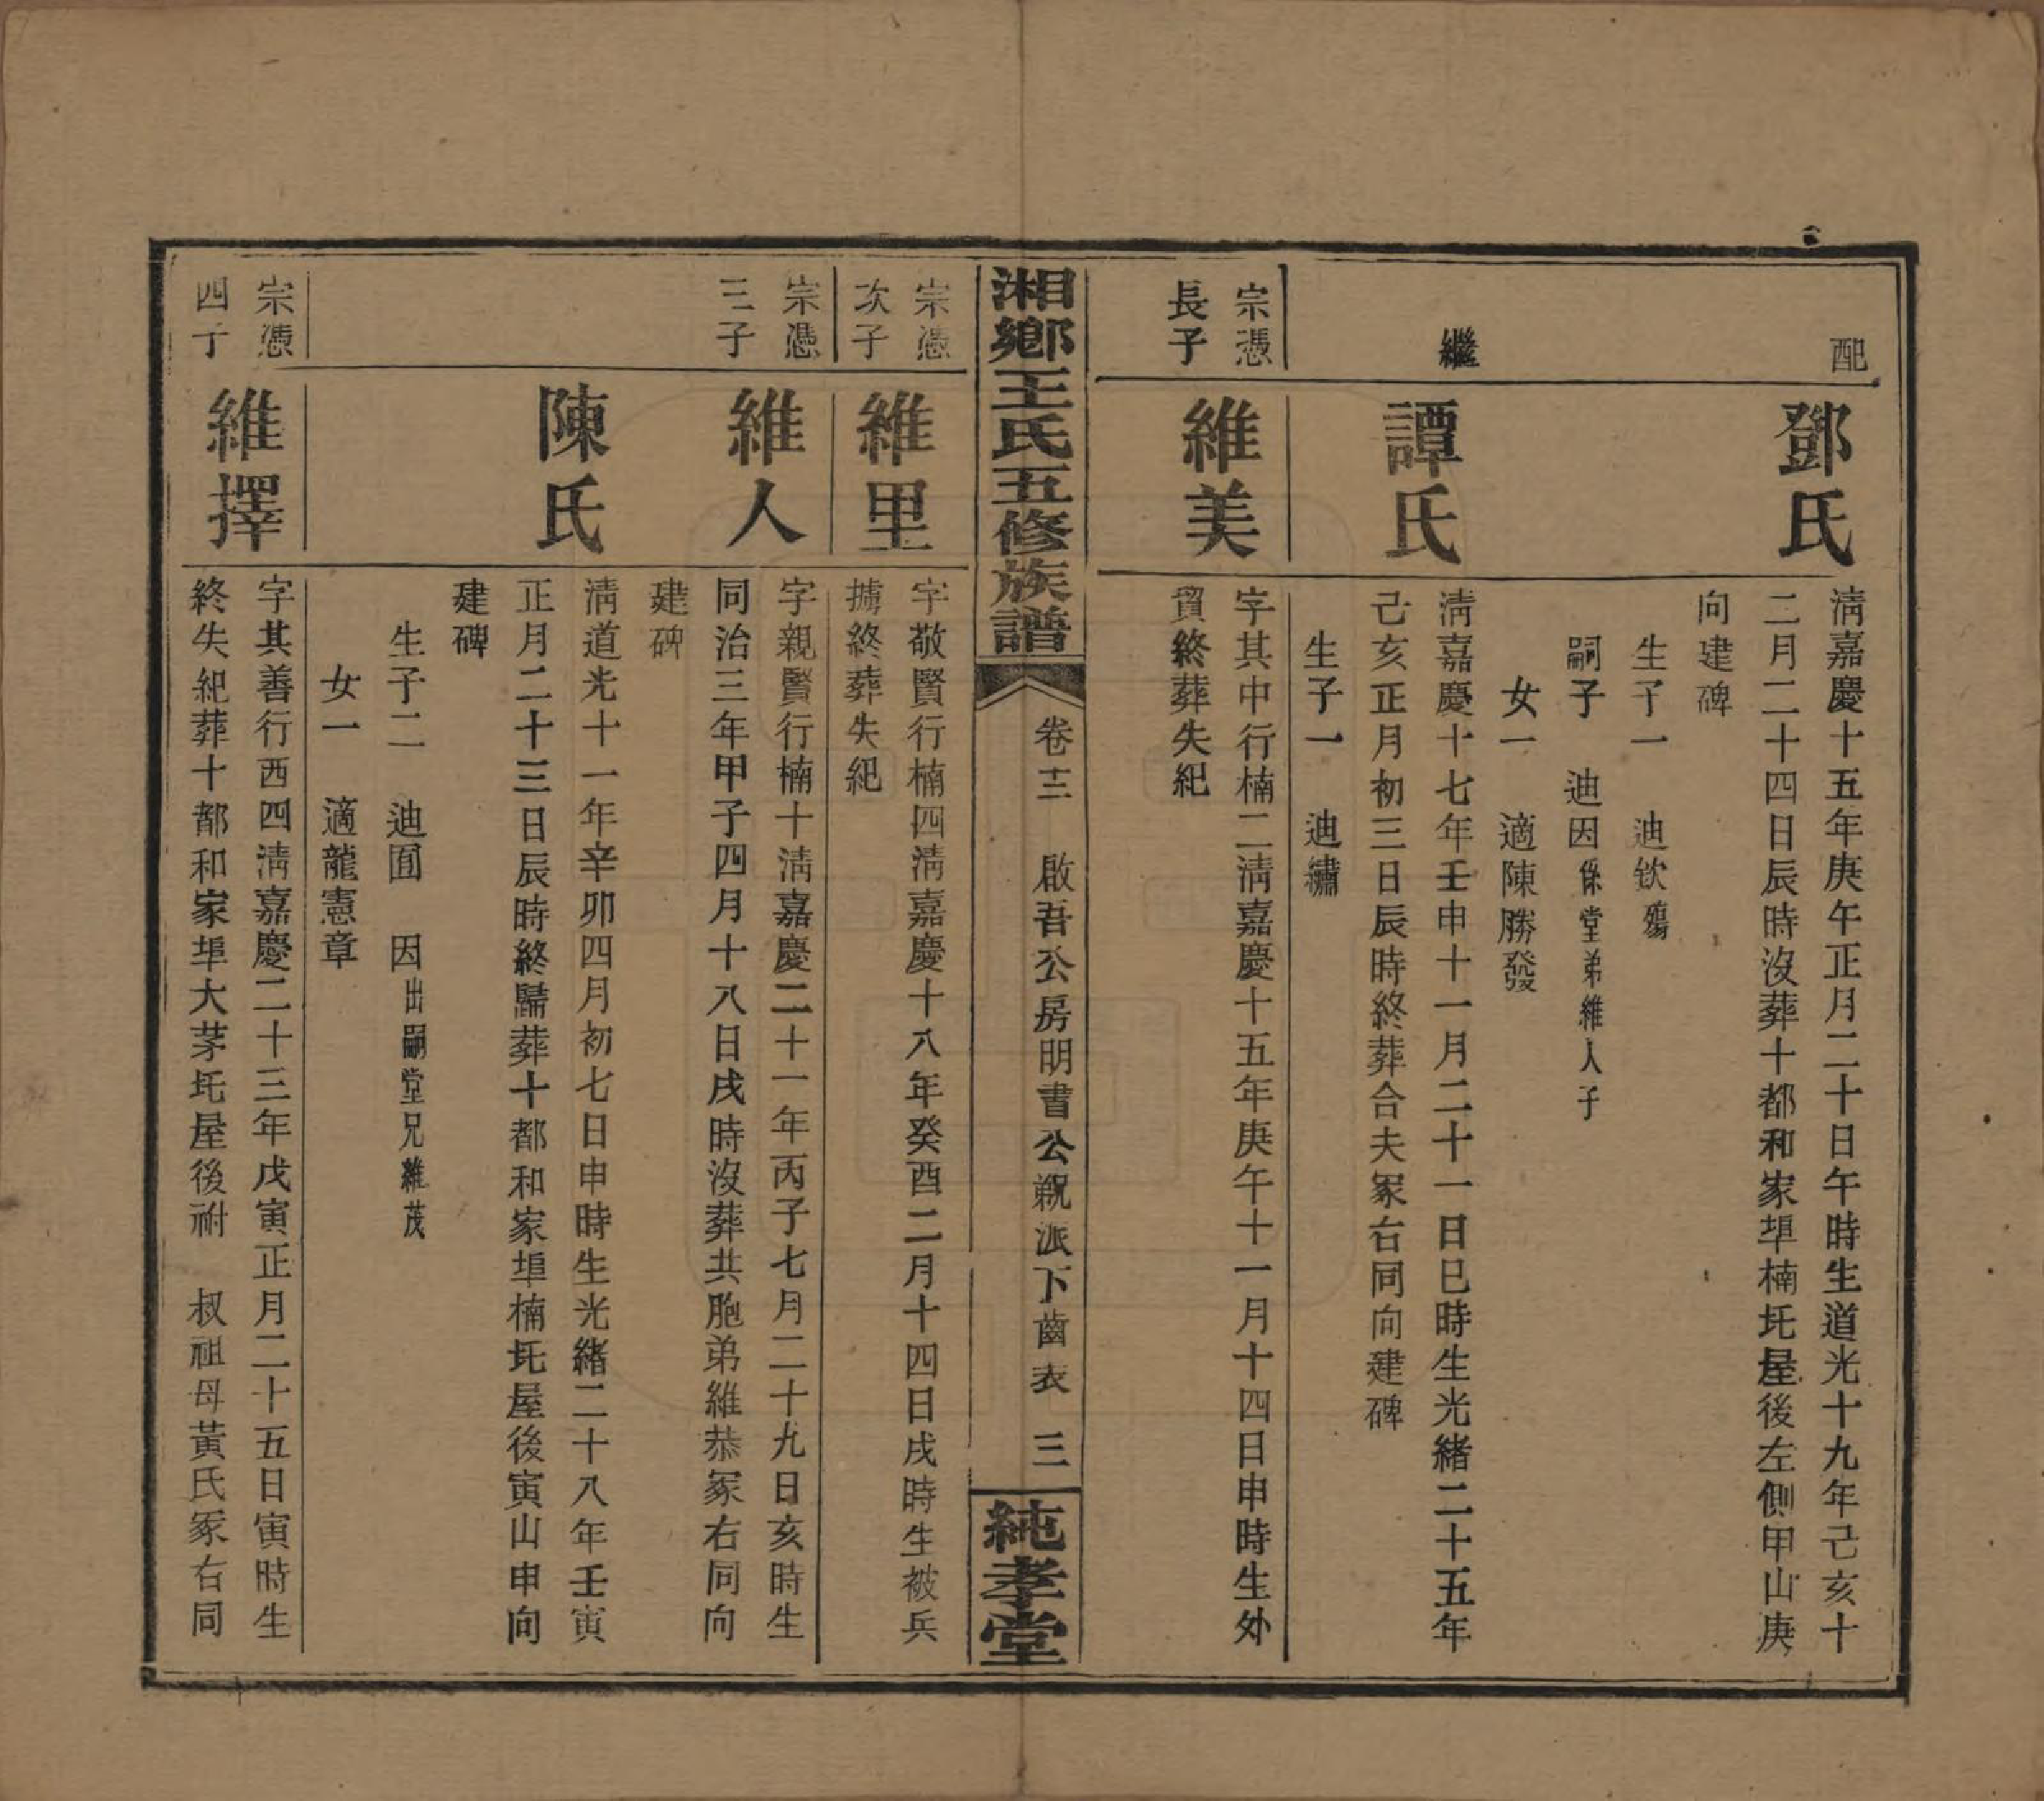 配
鄧氏
淸嘉慶十五年庚午正月二十日午時生道光十九年己亥十
二月二十四日辰時沒葬十都和家埠楠圫屋後左側甲山庚
向建碑
生子一　迪欽殤
嗣子　迪因係堂弟維人子
女一　適陳勝發
繼
譚氏
淸嘉慶十七年壬申十一月二十一日巳時生光緒二十五年
己亥正月初三日辰時終葬合夫冢右同向建碑
生子一　迪繡
宗憑
長子
維美
字其中行楠二淸嘉慶十五年庚午十一月十四日申時生外
貿終葬失紀
湘鄉王氏五修族譜
卷十三　啟吾公房明書公觀派下齒表　三
純孝堂
宗憑
次子
維里
字敬賢行楠四淸嘉慶十八年癸酉二月十四日戌時生被兵
擄終葬失紀
宗憑
三子
維人
字親賢行楠十淸嘉慶二十一年丙子七月二十九日亥時生
同治三年甲子四月十八日戌時沒葬共胞弟維恭冢右同向
建碑
陳氏
淸道光十一年辛卯四月初七日申時生光緒二十八年壬寅
正月二十三日辰時終歸葬十都和家埠楠圫屋後寅山申向
建碑
生子二　迪囿　因出嗣堂兄維茂
女一　適龍憲章
宗憑
四子
維擇
字其善行西四淸嘉慶二十三年戊寅正月二十五日寅時生
終失紀葬十都和家埠大茅圫屋後祔　叔祖母黃氏冢右同